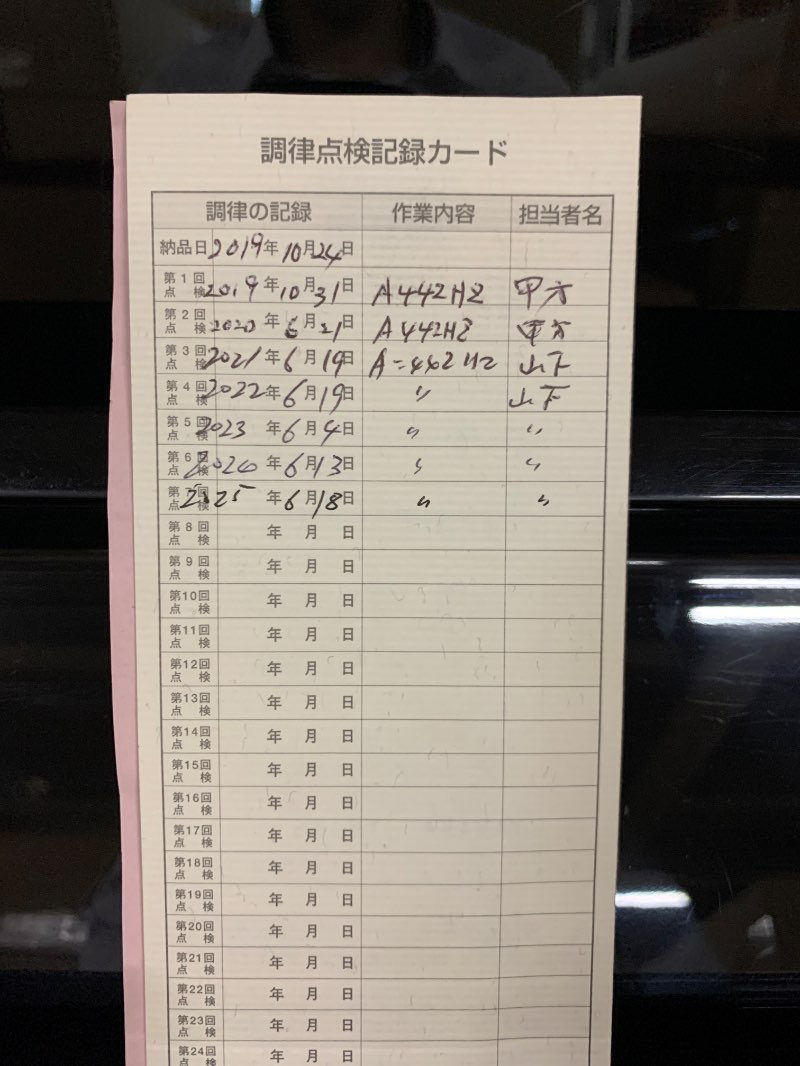 調律点検記録カード
調律の記録 作業内容 担当者名
納品日 2019年10月24日
第1回点検 2019年10月31日 A442HZ 甲方
第2回点検 2020年6月21日 A442HZ 甲方
第3回点検 2021年6月19日 A=442HZ 山下
第4回点検 2022年6月19日 〃 山下
第5回点検 2023年6月4日 〃 〃
第6回点検 2024年6月13日 〃 〃
第7回点検 2025年6月18日 〃 〃
第8回点検 年 月 日
第9回点検 年 月 日
第10回点検 年 月 日
第11回点検 年 月 日
第12回点検 年 月 日
第13回点検 年 月 日
第14回点検 年 月 日
第15回点検 年 月 日
第16回点検 年 月 日
第17回点検 年 月 日
第18回点検 年 月 日
第19回点検 年 月 日
第20回点検 年 月 日
第21回点検 年 月 日
第22回点検 年 月 日
第23回点検 年 月 日
第24回 年 月 日